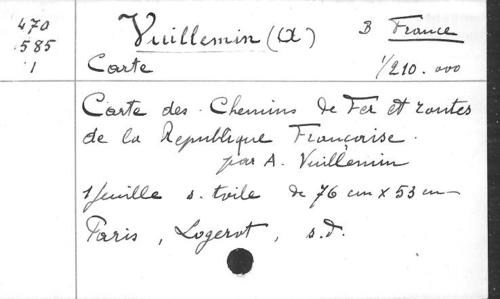 470 Vuillemin (A) B France
585
1 Carte 1/210.000
Carte des Chemins de Fer et routes
de la République Française.
par A. Vuillemin
1 feuille s. toile de 76 cm x 53 cm
Paris, Logerot, s.d.